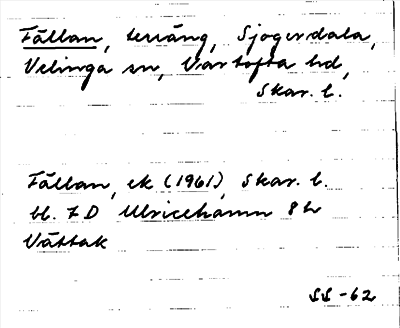 Fällan, terräng, Sjogerdala,
Velinga sn, Vartofta hd,
Skar. l.
Fällan, ek (1961), Skar. l.
bl. 7 D Ulricehamn 8 h
Vättak
SS -62